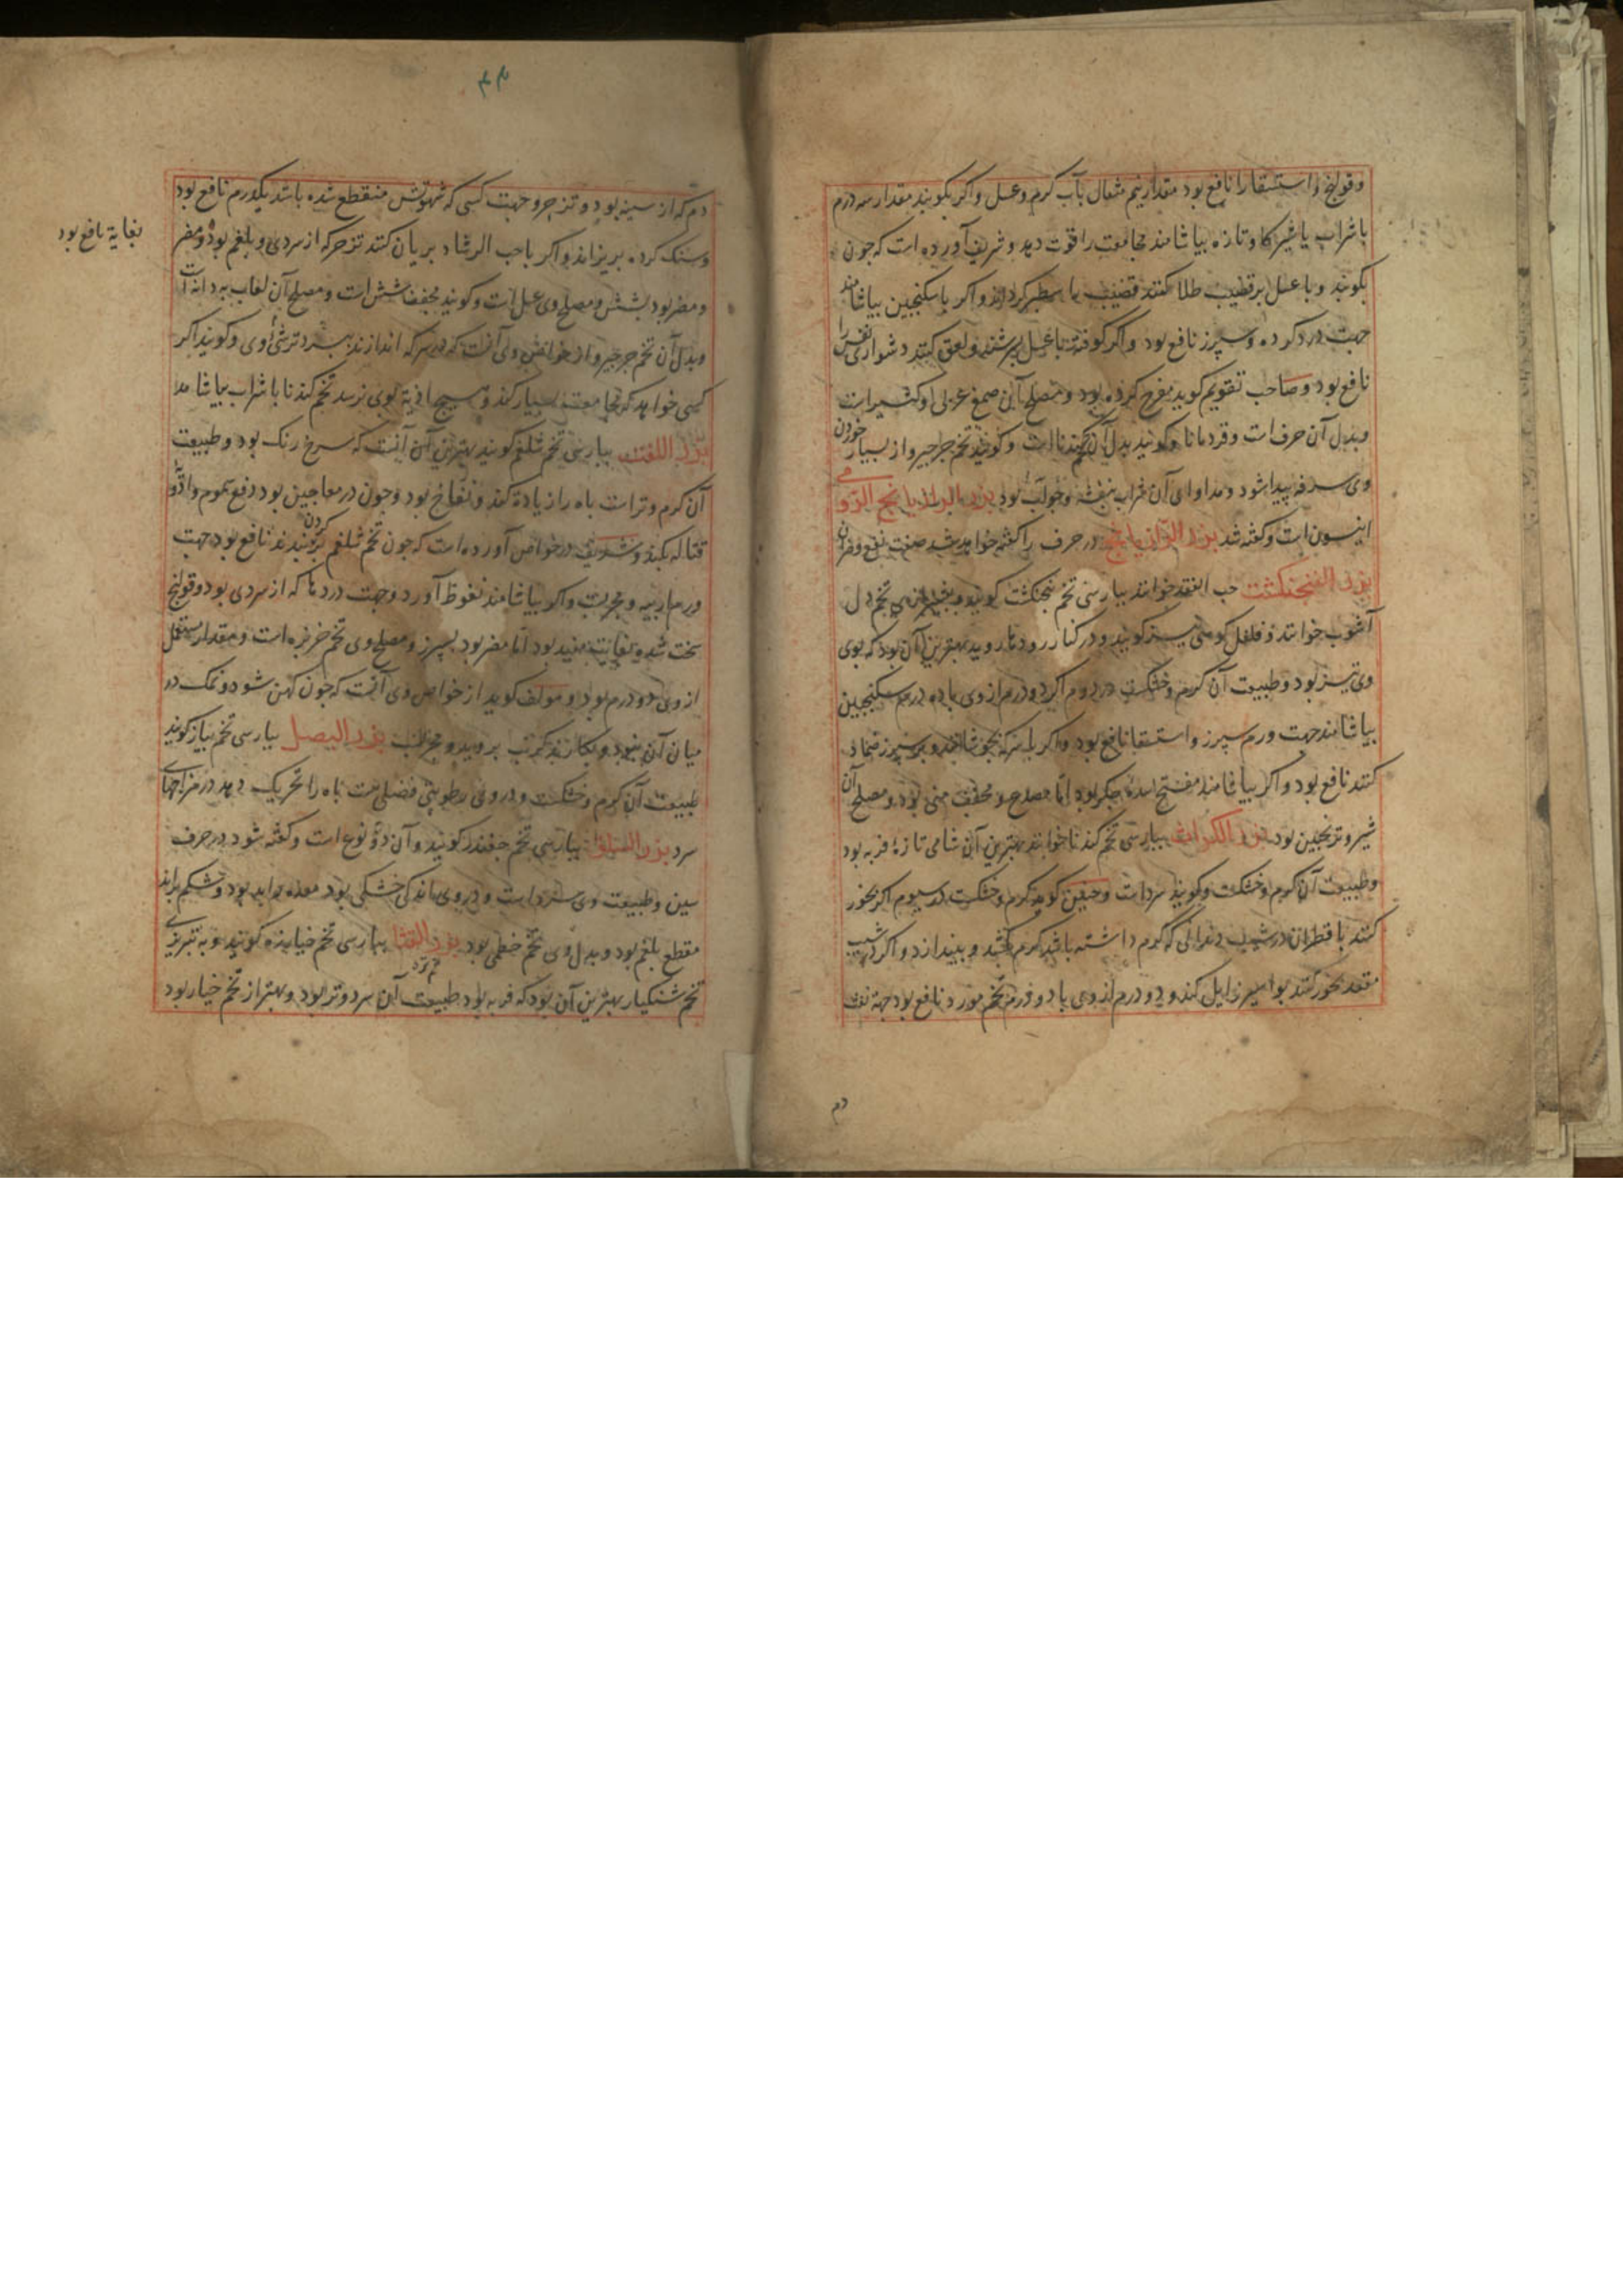 وقولنج و استسقا را نافع بود مقدار نیم مثقال بآب کرم وعسل واکر بکوبند مقدار سه درم
با شراب یا شیر کاو تازه بیاشامند مجامعت را قوت دهد و شریف آورده است که جون
بکوبند و با عسل بر قضیب طلا کنند قضیب را سطبر کرداند واکر با سکنجبین بیاشامند
جهت درد کرده و سپرز نافع بود واکر کوفته با عسل بسرشند ولعق کنند دشواری نفس را
نافع بود وصاحب تقویم کوید مفرح کرده بود ومصلح آن صمغ عربی و کثیراست
وبدل آن حرف است وقردمانا وکویند بدل آن تخم کندناست وکویند تخم جرجیر واز بسیار خوردن
وی سرفه پیدا شود ومداوای آن شراب بنفشه وجولاب بود بزر الرازیانج الرومی
انیسون است وکفته شد بزر الرازیانج در حرف را کفته خواهد شد صفت نفع ومضرت آن
بزر الفنجنکشت حب الفقد خوانند بپارسی تخم فنجنکشت کویند وبشیرازی تخم دل
آشوب خوانند وفلفل کوهی نیز کویند ودر کنار رودها روید بهترین آن بود که بوی
وی تیز بود وطبیعت آن کرم وخشکست در دوم اکر دو درم از وی با ده درم سکنجبین
بیاشامند جهت ورم سپرز واستسقا نافع بود واکر با سرکه بجوشانند وبر سپرز ضماد
کنند نافع بود واکر بیاشامند مفتح سده جکر بود اما مصدع ومجفف منی بود ومصلح آن
شیر وترنجبین بود بزر الکراث بپارسی تخم کندنا خوانند بهترین آن شامی تازه فربه بود
وطبیعت آن کرم وخشکست وکویند سرد است وحنین کوید کرم وخشکست در سیوم اکر بخور
کنند با قطران در شیب دندانی که کرم داشته باشد کرم بکشد وبیندازد واکر در شیب
مقعد بخور کنند بواسیر زایل کند و دو درم از وی با دو درم تخم مورد نافع بود جهة نفث
دم
۴۴
دم که از سینه بود و تزحر وجهت کسی که شهوتش منقطع شده باشد یکدرم نافع بود
وسنک کرده بریزاند واکر با حب الرشاد بریان کنند تزحر که از سردی وبلغم بود ومضر
بغایة نافع بود
ومضر بود بشش ومصلح وی عسل است وکویند مجفف شش است ومصلح آن لعاب به دانه است
وبدل آن تخم جرجیر واز خواص وی آنست که در سرکه اندازند ببرد ترشی اوی وکویند اکر
کسی خواهد که مجامعت بسیار کند وهیج اذیة بوی نرسد تخم کندنا با شراب بیاشامد
بزر اللفت بپارسی تخم شلغم کویند بهترین آن آنست که سرخ رنک بود وطبیعت
آن کرم وتر است باه را زیادة کند ونفاخ بود وجون در معاجین بود دفع سموم وادویه
قتاله بکند وشریف در خواص آورده است که جون تخم شلغم بر کردن بندند نافع بود جهت
ورم اربیه ومجربست واکر بیاشامند نغوظ آورد وجهت دردها که از سردی بود وقولنج
سخت شده بغایت مفید بود اما مضر بود بسپرز ومصلح وی تخم خربزه است ومقدار مستعمل
از وی دو درم بود ومولف کوید از خواص وی آنست که جون کهن شود ونمک در
میان آن بود وبکارند کرنب بروید ومجربست بزر البصل بپارسی تخم پیاز کویند
طبیعت آن کرم وخشکست ودر وی رطوبتی فضلی هست باه را تحریک دهد در مزاجهای
سرد بزر السلق بپارسی تخم جغندر کویند وآن دو نوع است وکفته شود در حرف
سین وطبیعت وی سرد است ودر وی اندکی خشکی بود معده را بد بود وشکم براند
مقطع بلغم بود وبدل وی تخم خطمی بود بزر القثا بپارسی تخم خیارزه کویند وبه تبریزی
تخم شنکیار بهترین آن بود که فربه بود طبیعت آن سرد وتر بود وبهتر از تخم خیار بود